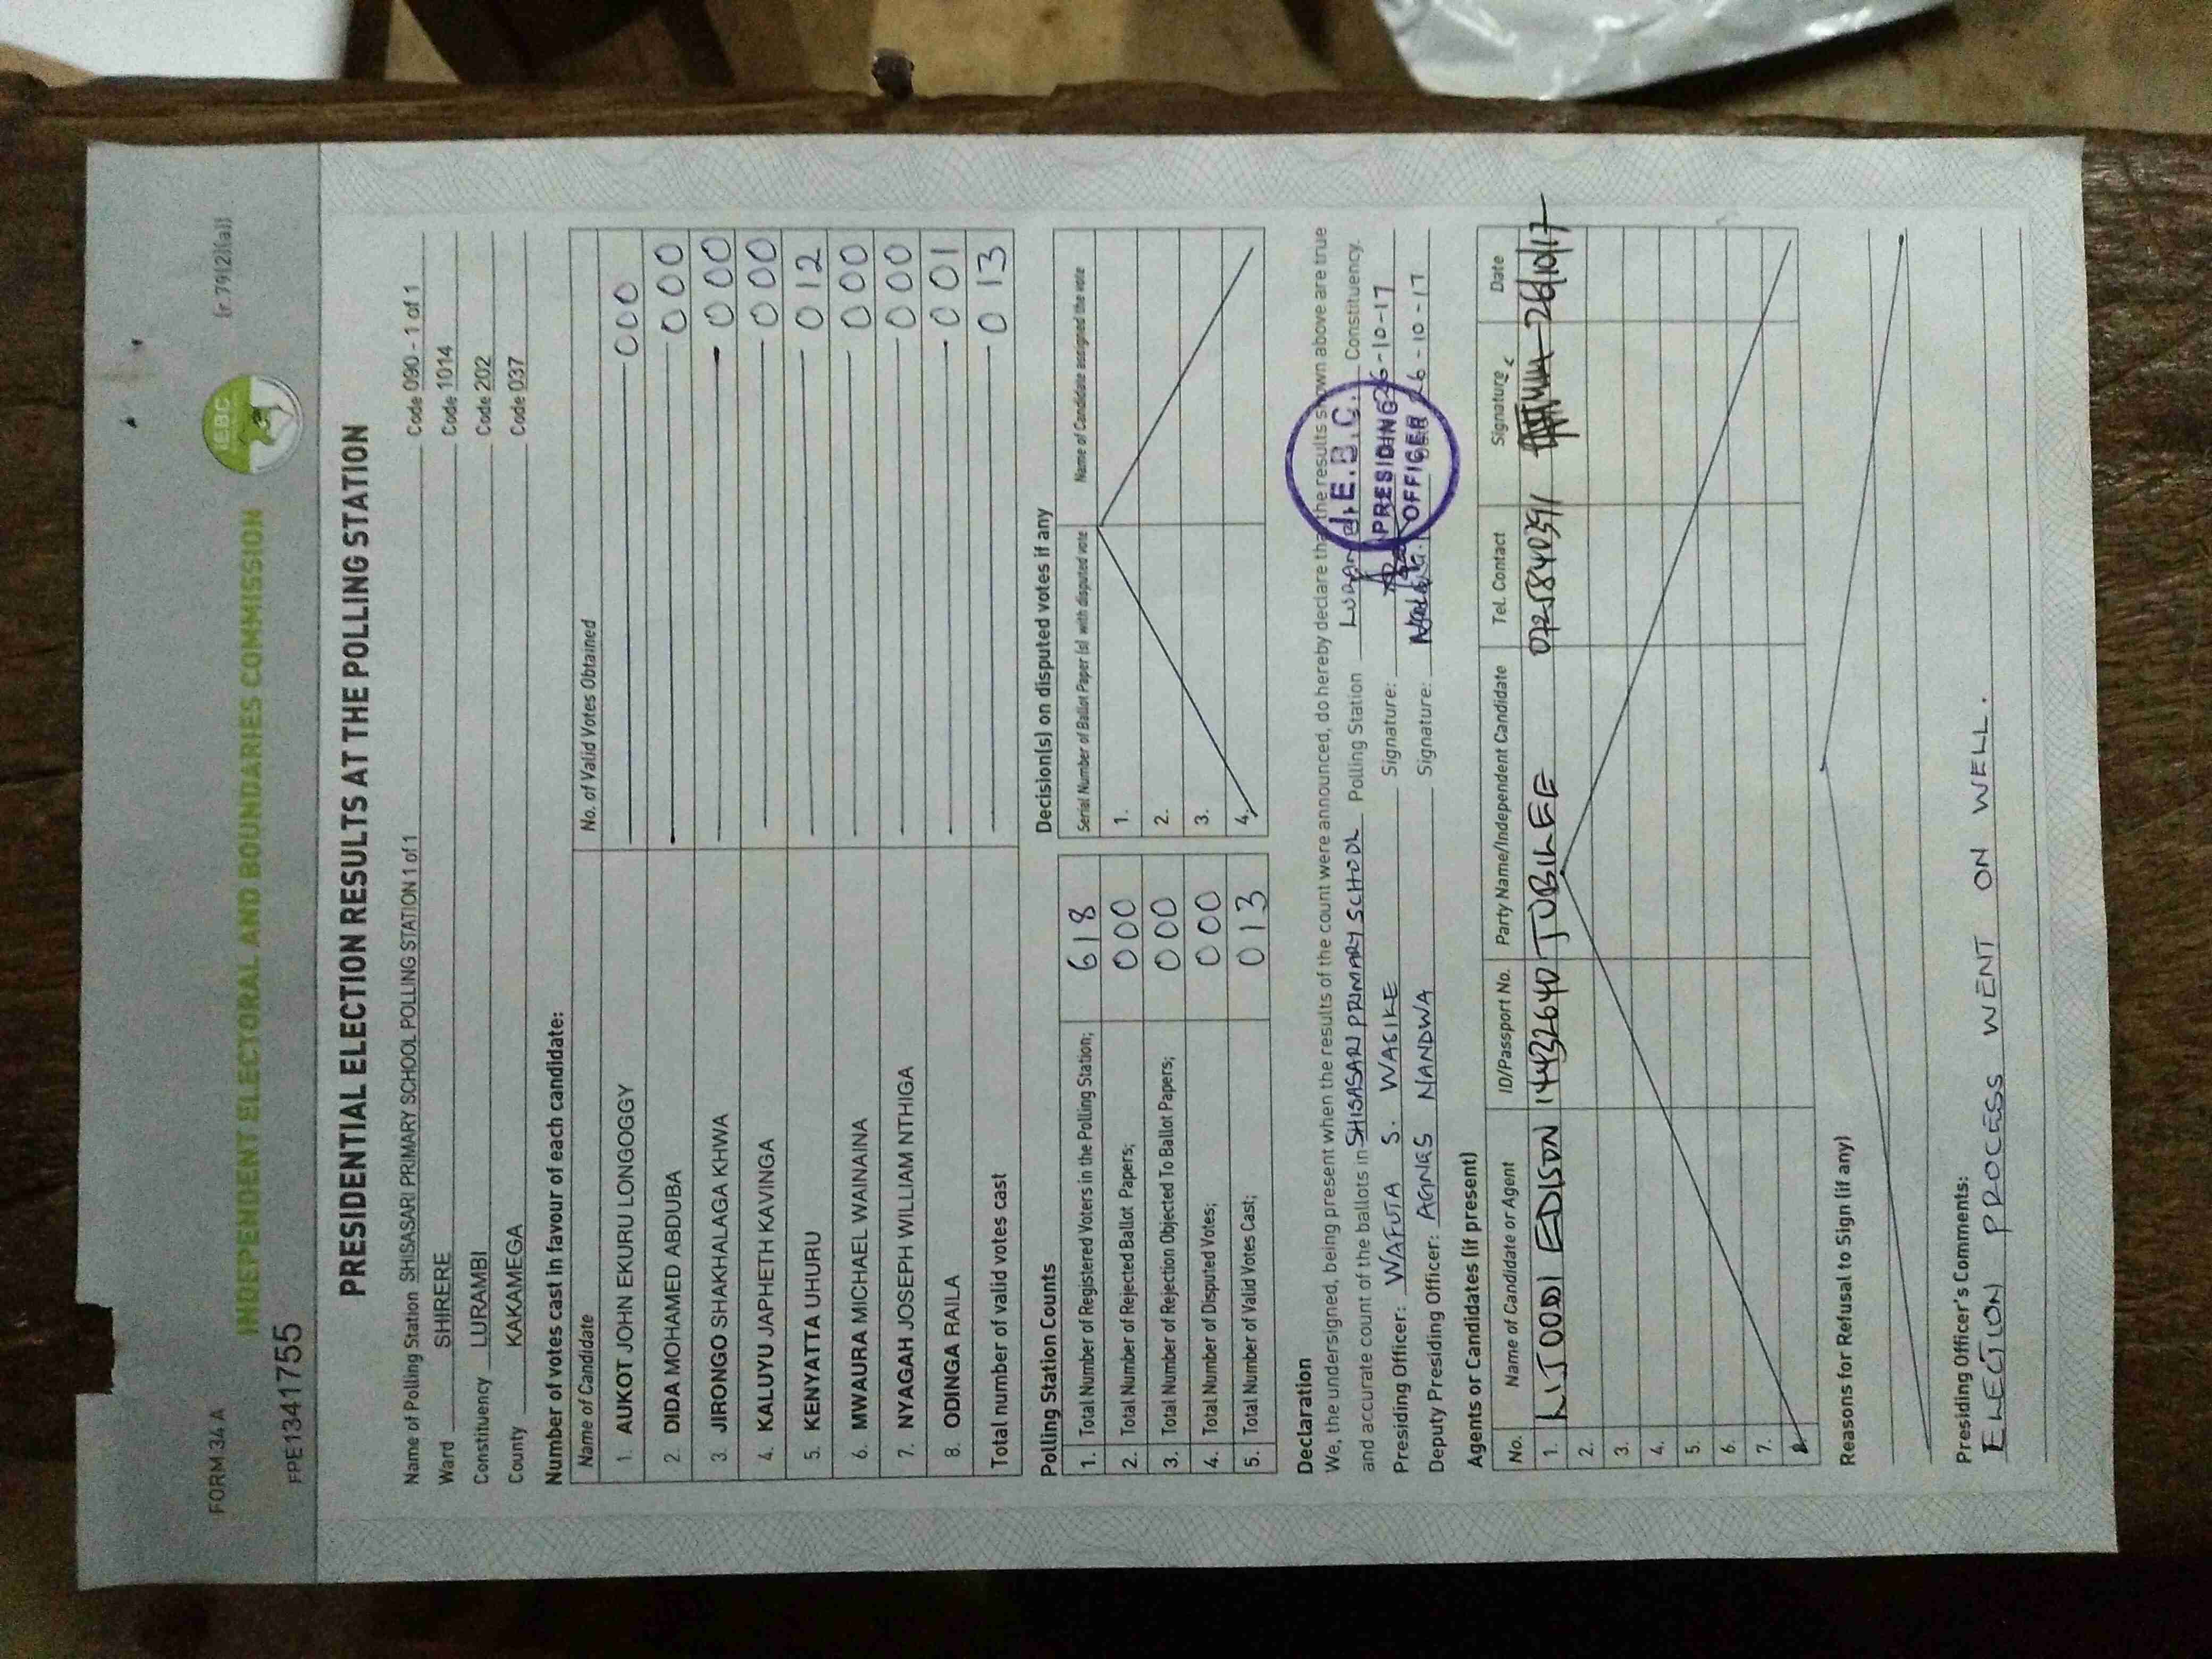 FORM 34 A
(r. 79(2)(a))
IEBC
INDEPENDENT ELECTORAL AND BOUNDARIES COMMISSION
FPE1341755
PRESIDENTIAL ELECTION RESULTS AT THE POLLING STATION
Name of Polling Station SHISASARI PRIMARY SCHOOL POLLING STATION 1 of 1 Code 090 - 1 of 1
Ward SHIRERE Code 1014
Constituency LURAMBI Code 202
County KAKAMEGA Code 037
Number of votes cast in favour of each candidate:
Name of Candidate No. of Valid Votes Obtained
1. AUKOT JOHN EKURU LONGOGGY 000
2. DIDA MOHAMED ABDUBA 000
3. JIRONGO SHAKHALAGA KHWA 000
4. KALUYU JAPHETH KAVINGA 000
5. KENYATTA UHURU 012
6. MWAURA MICHAEL WAINAINA 000
7. NYAGAH JOSEPH WILLIAM NTHIGA 000
8. ODINGA RAILA 001
Total number of valid votes cast 013
Polling Station Counts
1. Total Number of Registered Voters in the Polling Station; 618
2. Total Number of Rejected Ballot Papers; 000
3. Total Number of Rejection Objected To Ballot Papers; 000
4. Total Number of Disputed Votes; 000
5. Total Number of Valid Votes Cast; 013
Decision(s) on disputed votes if any
Serial Number of Ballot Paper (s) with disputed vote Name of Candidate assigned the vote
1.
2.
3.
4.
Declaration
We, the undersigned, being present when the results of the count were announced, do hereby declare that the results shown above are true
and accurate count of the ballots in SHISASARI PRIMARY SCHOOL Polling Station Constituency.
Presiding Officer: WAFUTA S. WASIKE Signature: 26-10-17
Deputy Presiding Officer: AGNES NANDWA Signature: 26-10-17
I.E.B.C.
PRESIDING
OFFICER
Agents or Candidates (if present)
No. Name of Candidate or Agent ID/Passport No. Party Name/Independent Candidate Tel. Contact Signature Date
1. LIJOODI EDISON 14432640 JUBILEE 0725840391 26/10/17
2.
3.
4.
5.
6.
7.
8.
Reasons for Refusal to Sign (if any)
Presiding Officer's Comments:
ELECTION PROCESS WENT ON WELL.